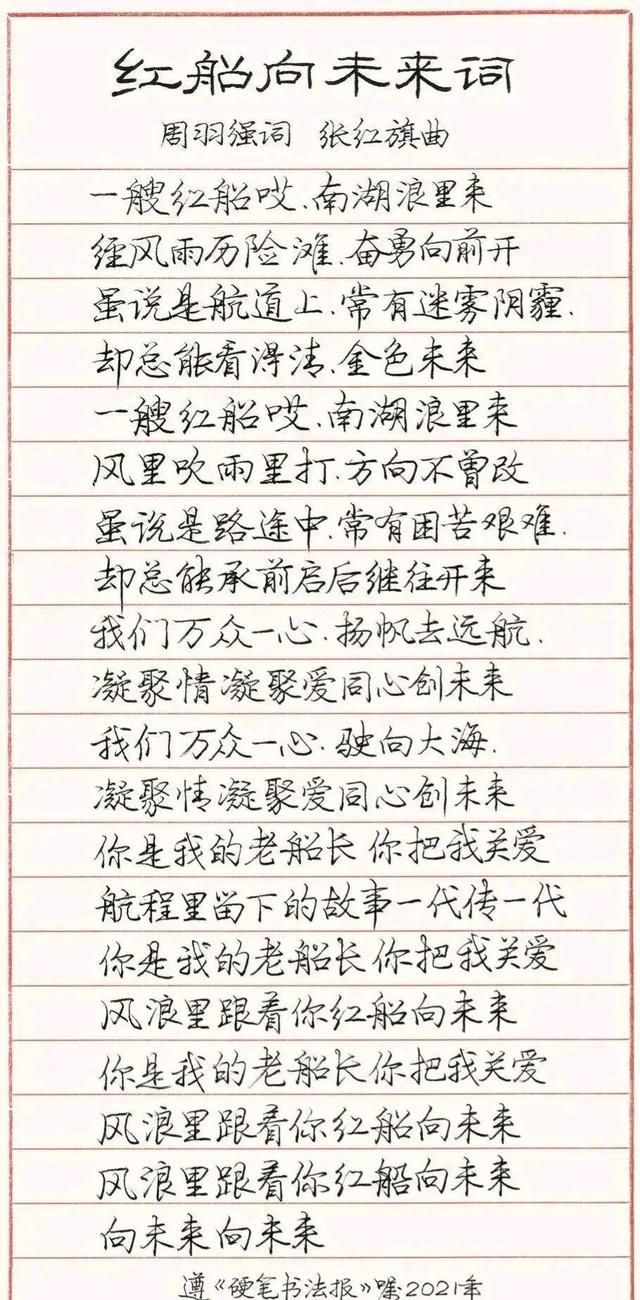 红船向未来词
周羽强词 张红旗曲
一艘红船哎、南湖浪里来
经风雨历险滩、奋勇向前开
虽说是航道上、常有迷雾阴霾、
却总能看得清、金色未来
一艘红船哎、南湖浪里来
风里吹雨里打、方向不曾改
虽说是路途中、常有困苦艰难、
却总能承前启后继往开来
我们万众一心、扬帆去远航、
凝聚情凝聚爱同心创未来
我们万众一心、驶向大海、
凝聚情凝聚爱同心创未来
你是我的老船长 你把我关爱
航程里留下的故事一代传一代
你是我的老船长你把我关爱
风浪里跟着你红船向未来
你是我的老船长你把我关爱
风浪里跟着你红船向未来
风浪里跟着你红船向未来
向未来向未来
遵《硬笔书法报》嘱2021年